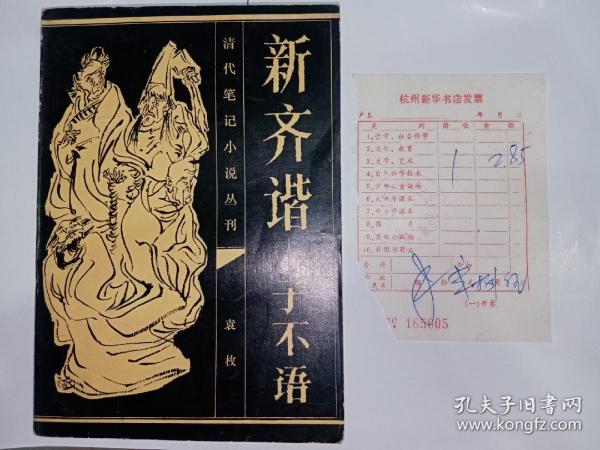 新齐谐
子不语
清代笔记小说丛刊
袁枚
杭州新华书店发票
户名 年 月 日
类 别 册 数 金 额
1.哲学、社会科学
2.文化、教育
3.文学、艺术 1 2.85
4.自然科学技术
5.少年儿童读物
6.大中专课本
7.中小学课本
8.图 片
9.其他出版物
10.非图书商品
合 计
(一)存根
165805
孔夫子旧书网
www.kongfz.com